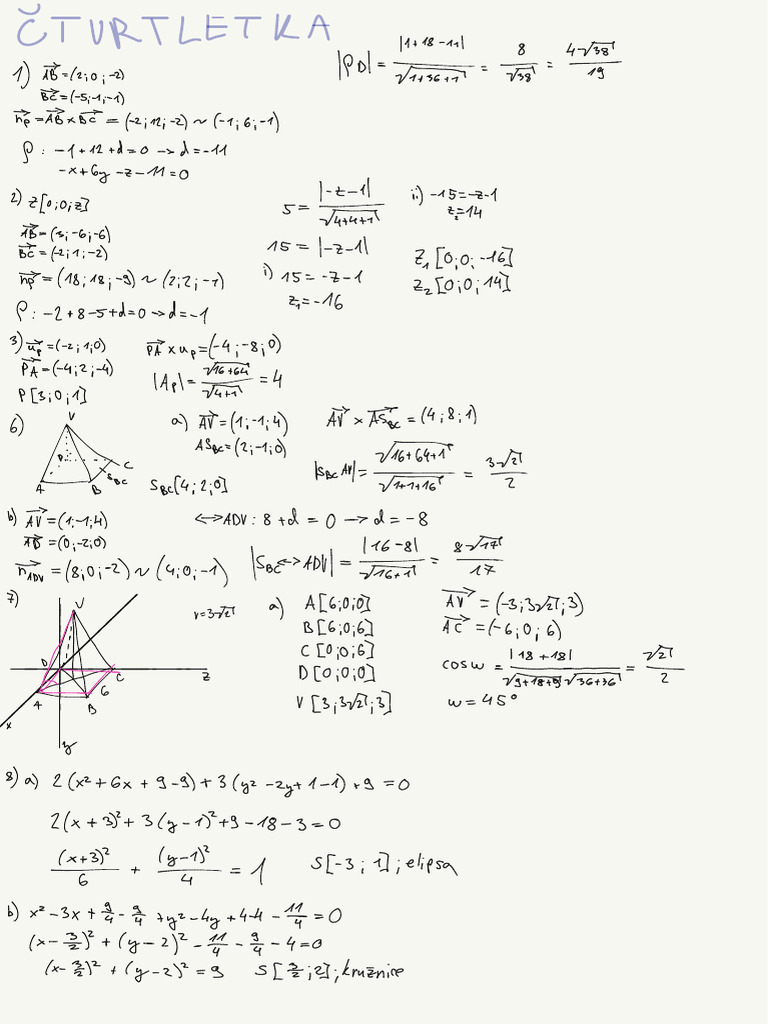 ČTVRTLETKA
1) AB=(2;0;-2)
BC=(-5;-1;-1)
nρ=AB×BC=(-2;12;-2)~(-1;6;-1)
ρ: -1+12+d=0→d=-11
-x+6y-z-11=0
|ρD|=|1+18-11|/√(1+36+1)=8/√38=4√38/19
2) Z[0;0;z]
AB=(3;-6;-6)
BC=(-2;1;-2)
nρ=(18;18;-9)~(2;2;-1)
ρ: -2+8-5+d=0→d=-1
5=|-z-1|/√(4+4+1)
15=|-z-1|
i) 15=-z-1
z₁=-16
ii) -15=-z-1
z₂=14
Z₁[0;0;-16]
Z₂[0;0;14]
3) up=(-2;1;0)
PA=(-4;2;-4)
P[3;0;1]
PA×up=(-4;-8;0)
|Ap|=√(16+64)/√(4+1)=4
6)
V
P
C
A
B
S_BC
a) AV=(1;-1;4)
AS_BC=(2;-1;0)
S_BC[4;2;0]
AV×AS_BC=(4;8;1)
|S_BC AV|=√(16+64+1)/√(1+1+16)=3√2/2
b) AV=(1;-1;4)
AD=(0;-2;0)
n_ADV=(8;0;-2)~(4;0;-1)
↔ADV: 8+d=0→d=-8
|S_BC↔ADV|=|16-8|/√(16+1)=8√17/17
7)
V
D
C
z
A
B
6
x
y
v=3√2
a) A[6;0;0]
B[6;0;6]
C[0;0;6]
D[0;0;0]
V[3;3√2;3]
AV=(-3;3√2;3)
AC=(-6;0;6)
cosω=|18+18|/√(9+18+9)√(36+36)=√2/2
ω=45°
8) a) 2(x²+6x+9-9)+3(y²-2y+1-1)+9=0
2(x+3)²+3(y-1)²+9-18-3=0
(x+3)²/6+(y-1)²/4=1 S[-3;1]; elipsa
b) x²-3x+9/4-9/4+y²-4y+4-4-11/4=0
(x-3/2)²+(y-2)²-11/4-9/4-4=0
(x-3/2)²+(y-2)²=9 S[3/2;2]; kružnice